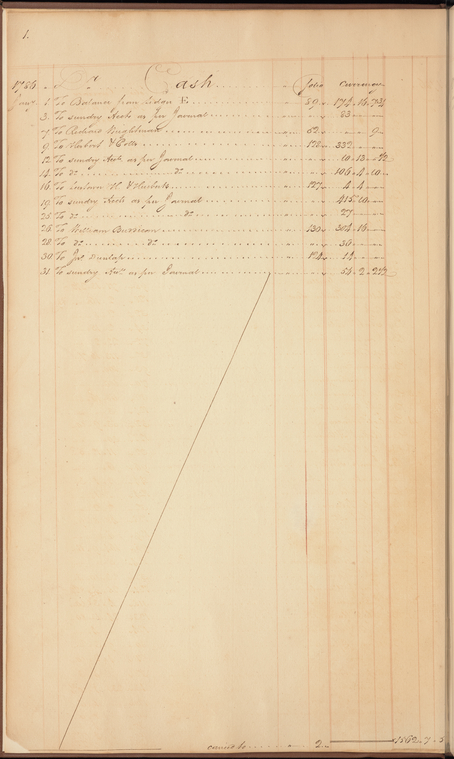 1.
1786 Cash folio Currency
Jany 1 To Balance from Ledger E 59 174 16 7¾
3 To sundry Accts as per Journal 53
7 To Richard 62 9
9 To Herbert & Potts 332
12 To sundry Accts as per Journal 10 13 ½
14 To do do 106 4 10
16 To 127 4 4
19 To sundry Accts as per Journal 415 10
25 To do do 27
26 To William 130 304 16
28 To do do 36
30 To Jas Dunlap 174 14
31 To sundry Accts as per Journal 54 2
carried to 2 1562 7 5